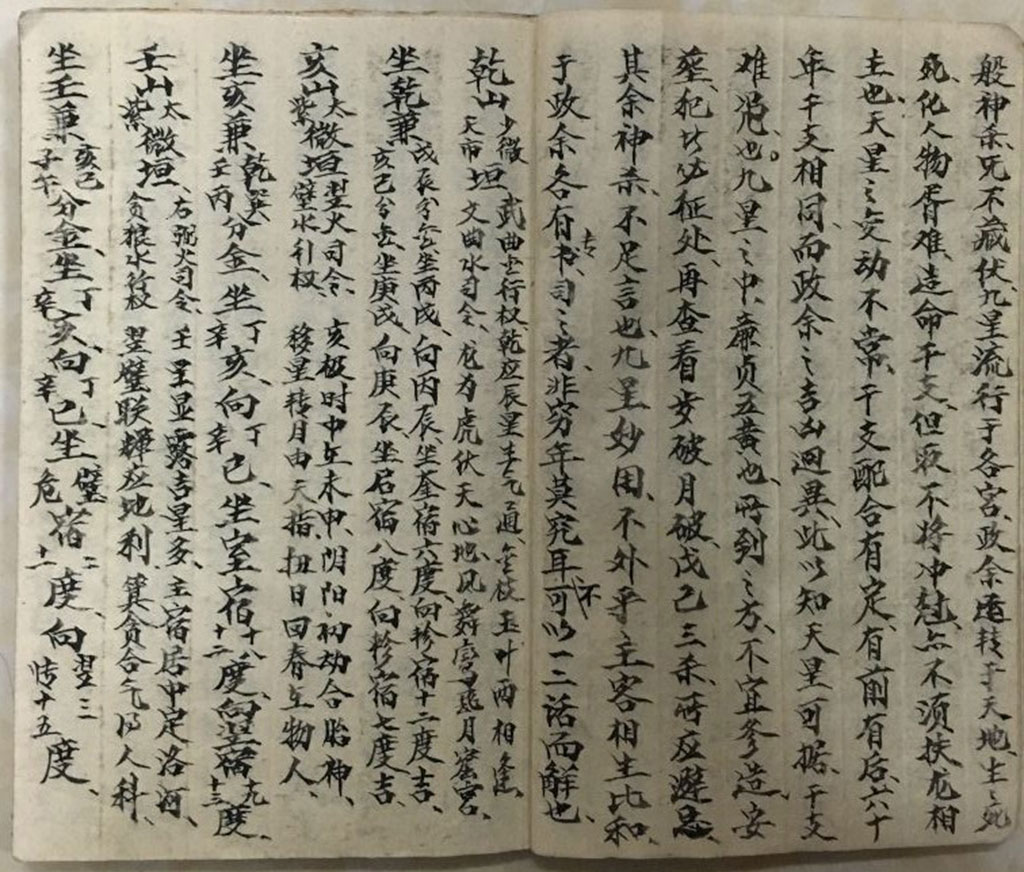 般神杀、咒不藏伏、九星流行于各宫、政余运转于天地、生之死
死、化人物胥难、造命干支、但取不将冲怼、亦不须扶龙相
主也、天星之交动不常、干支配合有定、有前有后、六十
年干支相同、而政余之吉凶迥异、此以知天星可据、干支
难凭也。九星之中、廉贞五黄也、所到之方、不宜参造安
茔、犯者必征处、再查看岁破月破戊己三杀、所应避忌、
其余神杀、不足言也、九星妙用、不外乎主客相生比和、
于政余各有专书、司之者、非穷年莫究耳、不可以一二话而解也、
乾山少微天市垣 武曲金行权、乾应辰星生气通、金枝玉叶两相逢、
文曲水司令、龙为虎伏天心地、风舞鸾飞月宫宫、
坐乾兼 戌辰分金、坐丙戌、向丙辰、坐奎宿六度、向轸宿十二度吉、
亥巳分金、坐庚戌、向庚辰、坐宿八度、向轸宿七度吉、
亥山太紫微垣 翌火司令、亥极时中在未申、阴阳初动合胎神、
壁水行权、移星转月由天指、扭日回春在物人、
坐亥兼乾巽壬丙分金、坐丁辛亥、向丁辛巳、坐室宿十八十二度、向翌宿九十三度、
壬山太紫微垣、右弼火司令、壬星显露吉星多、主宿居中定洛河、
贪狼水行权 翌壁联辉应地利、箕贪合气得人科、
坐壬兼亥巳子午分金、坐丁辛亥、向丁辛巳、坐壁二危十一宿度、向翌三张十五度、